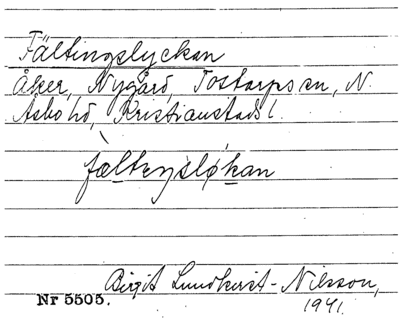 Fältingslyckan
Åker, Nygård, Tostarps sn, N.
Åsbo hd, Kristianstads l.
fælteŋsløkan
Birgit Lundkvist-Nilsson,
Nr 5505.
1941.